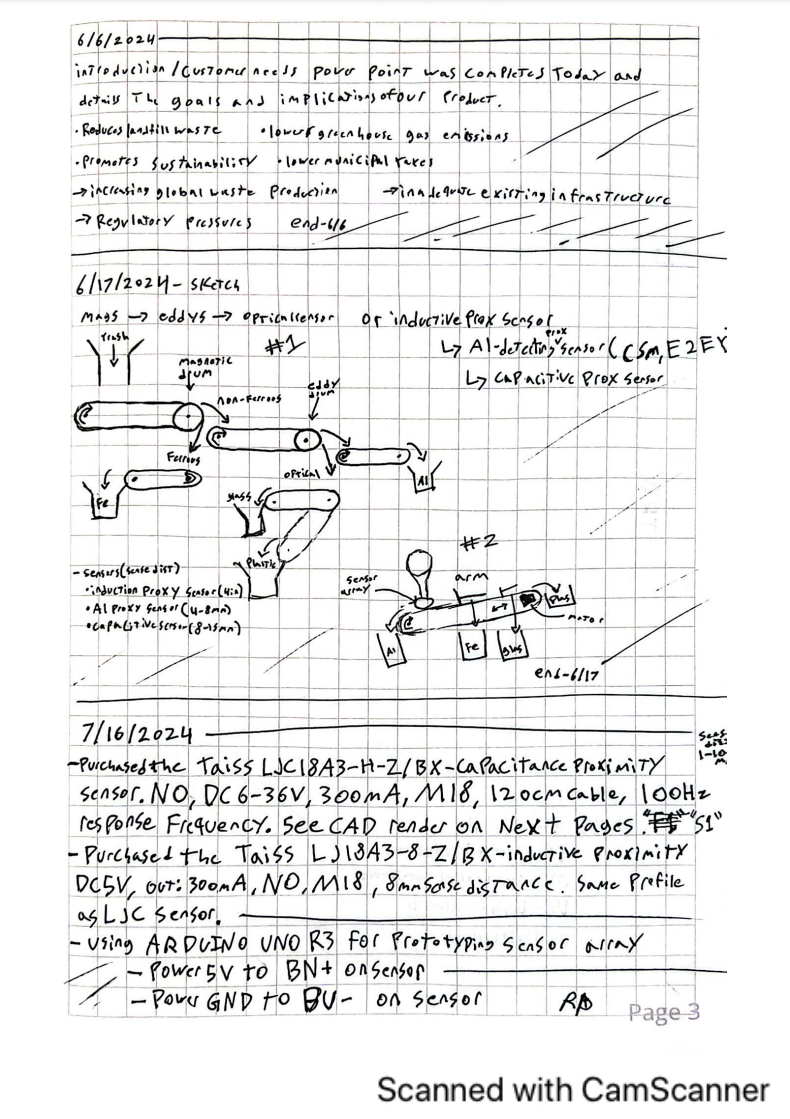 6/6/2024
introduction/customer needs power point was completed today and
details the goals and implications of our product.
· Reduces landfill waste · lowers greenhouse gas emissions
· Promotes sustainability · lower municipal taxes
→ increasing global waste production → inadequate existing infrastructure
→ Regulatory pressures end-6/6
6/17/2024 - SKetch
mags → eddys → optical sensor or inductive prox sensor
↳ Al-detecting prox sensor (CSM, E2EY
↳ capacitive prox sensor
#1
Trash
magnetic drum
non-Ferrous
eddy drum
Ferrous
optical
Al
Fe
glass
Plastic
- sensors (sense dist)
· induction proxy sensor (4in)
· Al proxy sensor (4-8mm)
· capacitive sensor (8-15mm)
#2
sensor array
arm
Plas
motor
Al
Fe
glas
end-6/17
7/16/2024
sens dist 1-10
- Purchased the Taiss LJC18A3-H-Z/BX-Capacitance Proximity
sensor. NO, DC 6-36V, 300mA, M18, 120cm cable, 100Hz
response Frequency. See CAD render on Next pages. "S1"
- Purchased the Taiss LJ18A3-8-Z/BX-inductive Proximity
DC5V, out: 300mA, NO, M18, 8mm sense distance. Same Profile
as LJC sensor.
- using ARDUINO UNO R3 for Prototyping sensor array
- Power 5V to BN+ on sensor
- Power GND to BU- on sensor
Page 3
Scanned with CamScanner